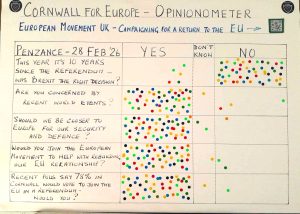 CORNWALL FOR EUROPE - OPINIONOMETER
EUROPEAN MOVEMENT UK - CAMPAIGNING FOR A RETURN TO THE EU
PENZANCE - 28 FEB 26
YES
DON'T KNOW
NO
THIS YEAR IT'S 10 YEARS
SINCE THE REFERENDUM -
WAS BREXIT THE RIGHT DECISION?
ARE YOU CONCERNED BY
RECENT WORLD EVENTS?
SHOULD WE BE CLOSER TO
EUROPE FOR OUR SECURITY
AND DEFENCE?
WOULD YOU JOIN THE EUROPEAN
MOVEMENT TO HELP WITH REBUILDING
OUR EU RELATIONSHIP?
RECENT POLLS SAY 78% IN
CORNWALL WOULD VOTE TO JOIN THE
EU IN A REFERENDUM -
WOULD YOU?